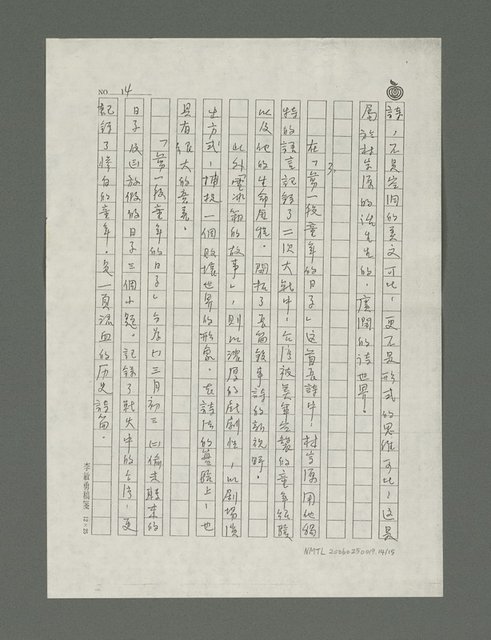 NO. 14
詩，不是空洞的美文可比，更不是形式的思維可比，這是
屬於林宗源的活生生的，廣闊的詩世界！
3、
在「嘗一段童年的日子」這首長詩中，林宗源用他獨
特的語言記錄了二次大戰中，台灣被美軍空襲的童年經驗
以及他的生命歷程。開拓了長篇敘事詩的新視野。
此外 的故事」，則以濃厚的戲劇性，以劇場演
出方式，捕捉一個敗壞世界的形象。在詩法的實踐上，也
具有很大的意義。
「嘗一段童年的日子」分為(一)三月初三(二)偷未熟來的
日子(三)放假的日子三個小題。記錄了戰火中的台灣，更
記錄了蒼白的童年。是一頁流血的历史詩篇。
李敏勇稿箋 22×25
NMTL 20060250019.14/15